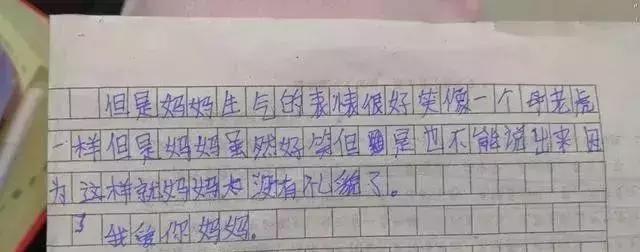 但是妈妈生气的表情很好笑像一个母老虎
一样但是妈妈虽然好笑但是也不能说出来因
为这样就妈妈太没有礼貌了。
我爱你妈妈。